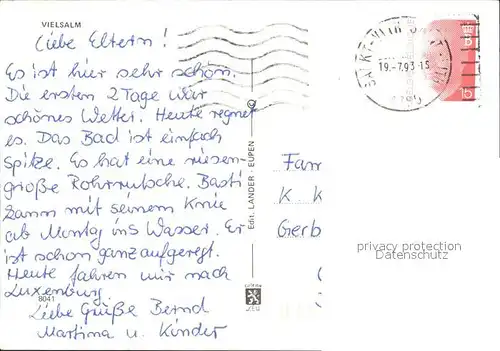 VIELSALM
Liebe Eltern!
Es ist hier sehr schön.
Die ersten 2 Tage war
schönes Wetter. Heute regnet
es. Das Bad ist einfach
Spitze. Es hat eine riesen-
große Rohrrutsche. Basti
kann mit seinem Knie
ab Montag ins Wasser. Er
ist schon ganz aufgeregt.
Heute fahren wir nach
Luxenburg.
8041
Liebe Grüße Bernd
Martina u. Kinder
Edit. LANDER - EUPEN
19.-7.93-15
15
Fam
K K
Gerb
privacy protection
Datenschutz